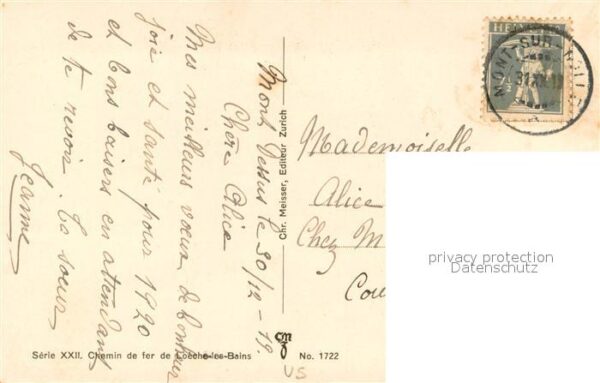 Mont dessus le 30/12-19.
Chère Alice
Mes meilleurs vœux de bonheur
joie et santé pour 1920
et bons baisers en attendant
de te revoir. Ta soeur
Jeanne
Chr. Meisser, Editeur Zurich
HELVETIA
MONT-SUR-ROLLE
31.XII.19
Mademoiselle
Alice
Chez M
Cou
privacy protection
Datenschutz
Série XXII. Chemin de fer de Loèche-les-Bains
No. 1722